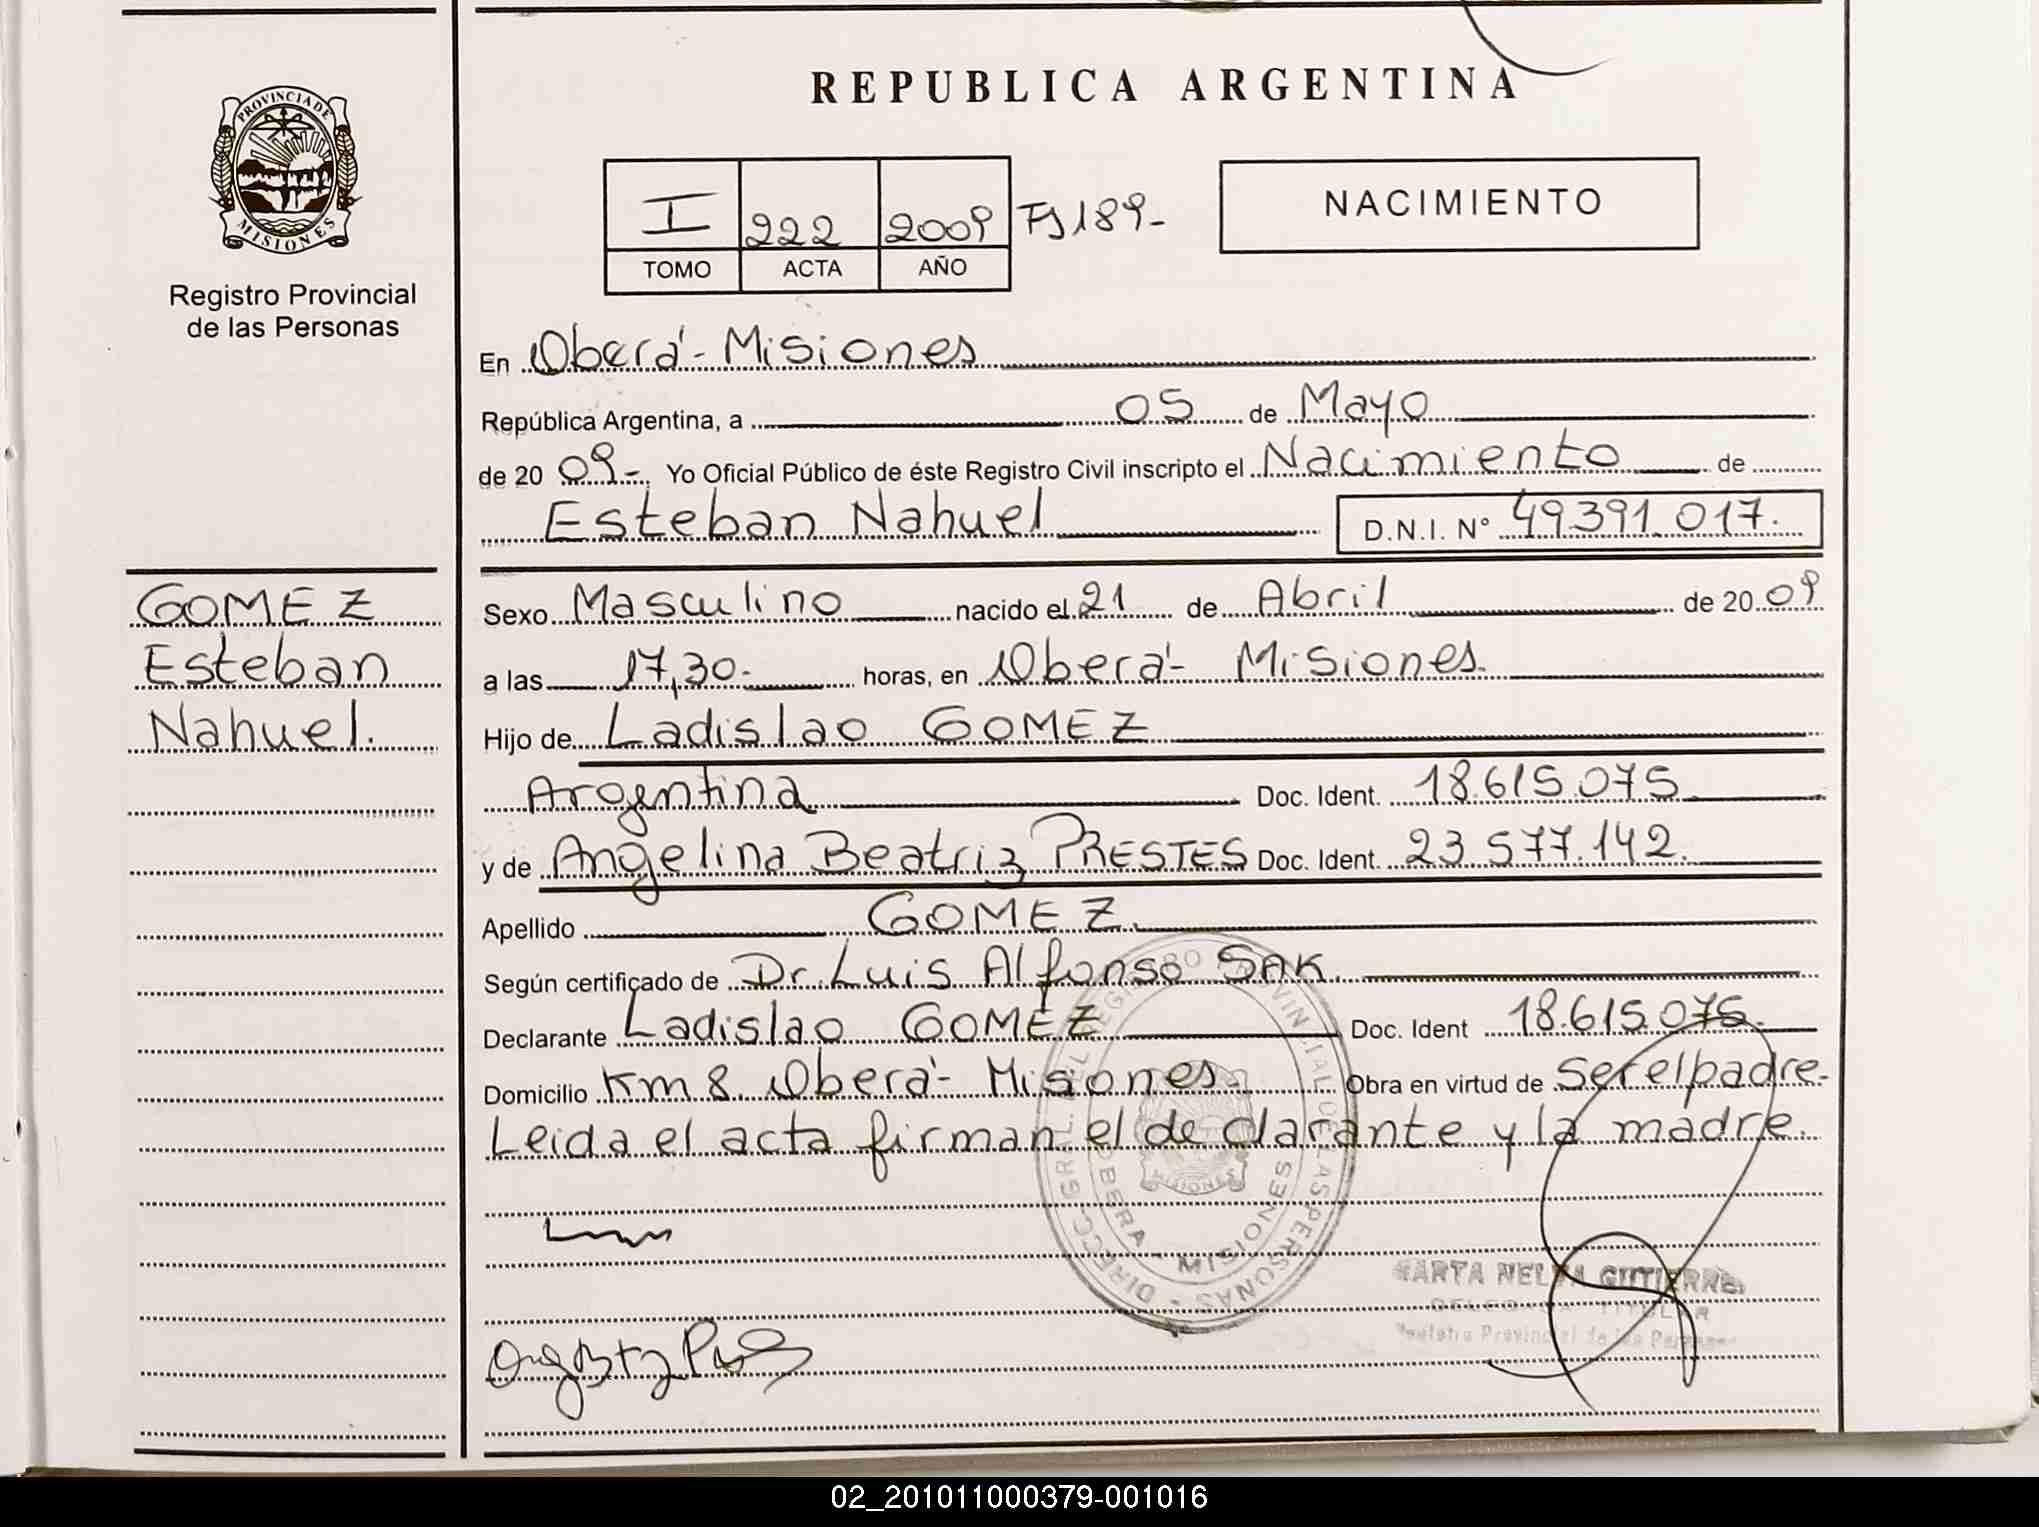 REPUBLICA ARGENTINA
PROVINCIA DE
MISIONES
Registro Provincial
de las Personas
I 222 2009 Fs 189-
TOMO ACTA AÑO
NACIMIENTO
En Oberá - Misiones
República Argentina, a 05 de Mayo
de 20 09-. Yo Oficial Público de éste Registro Civil inscripto el Nacimiento de
Esteban Nahuel D.N.I. N° 49.391.017.
GOMEZ
Esteban
Nahuel.
Sexo Masculino nacido el 21 de Abril de 20 09
a las 17,30- horas, en Oberá - Misiones.
Hijo de Ladislao GOMEZ
Argentina Doc. Ident. 18.615.075
y de Angelina Beatriz PRESTES Doc. Ident. 23.577.142.
Apellido GOMEZ.
Según certificado de Dr. Luis Alfonso SAK.
Declarante Ladislao GOMEZ Doc. Ident 18.615.075.
Domicilio Km 8. Oberá - Misiones. Obra en virtud de ser el padre.-
Leida el acta firman el declarante y la madre.
DIRECC. GRAL. DEL REGISTRO PROVINCIAL DE LAS PERSONAS
OBERA - MISIONES
MISIONES
MARTA NELIDA GUTIERREZ
TITULAR
Registro Provincial de las Personas
02_201011000379-001016